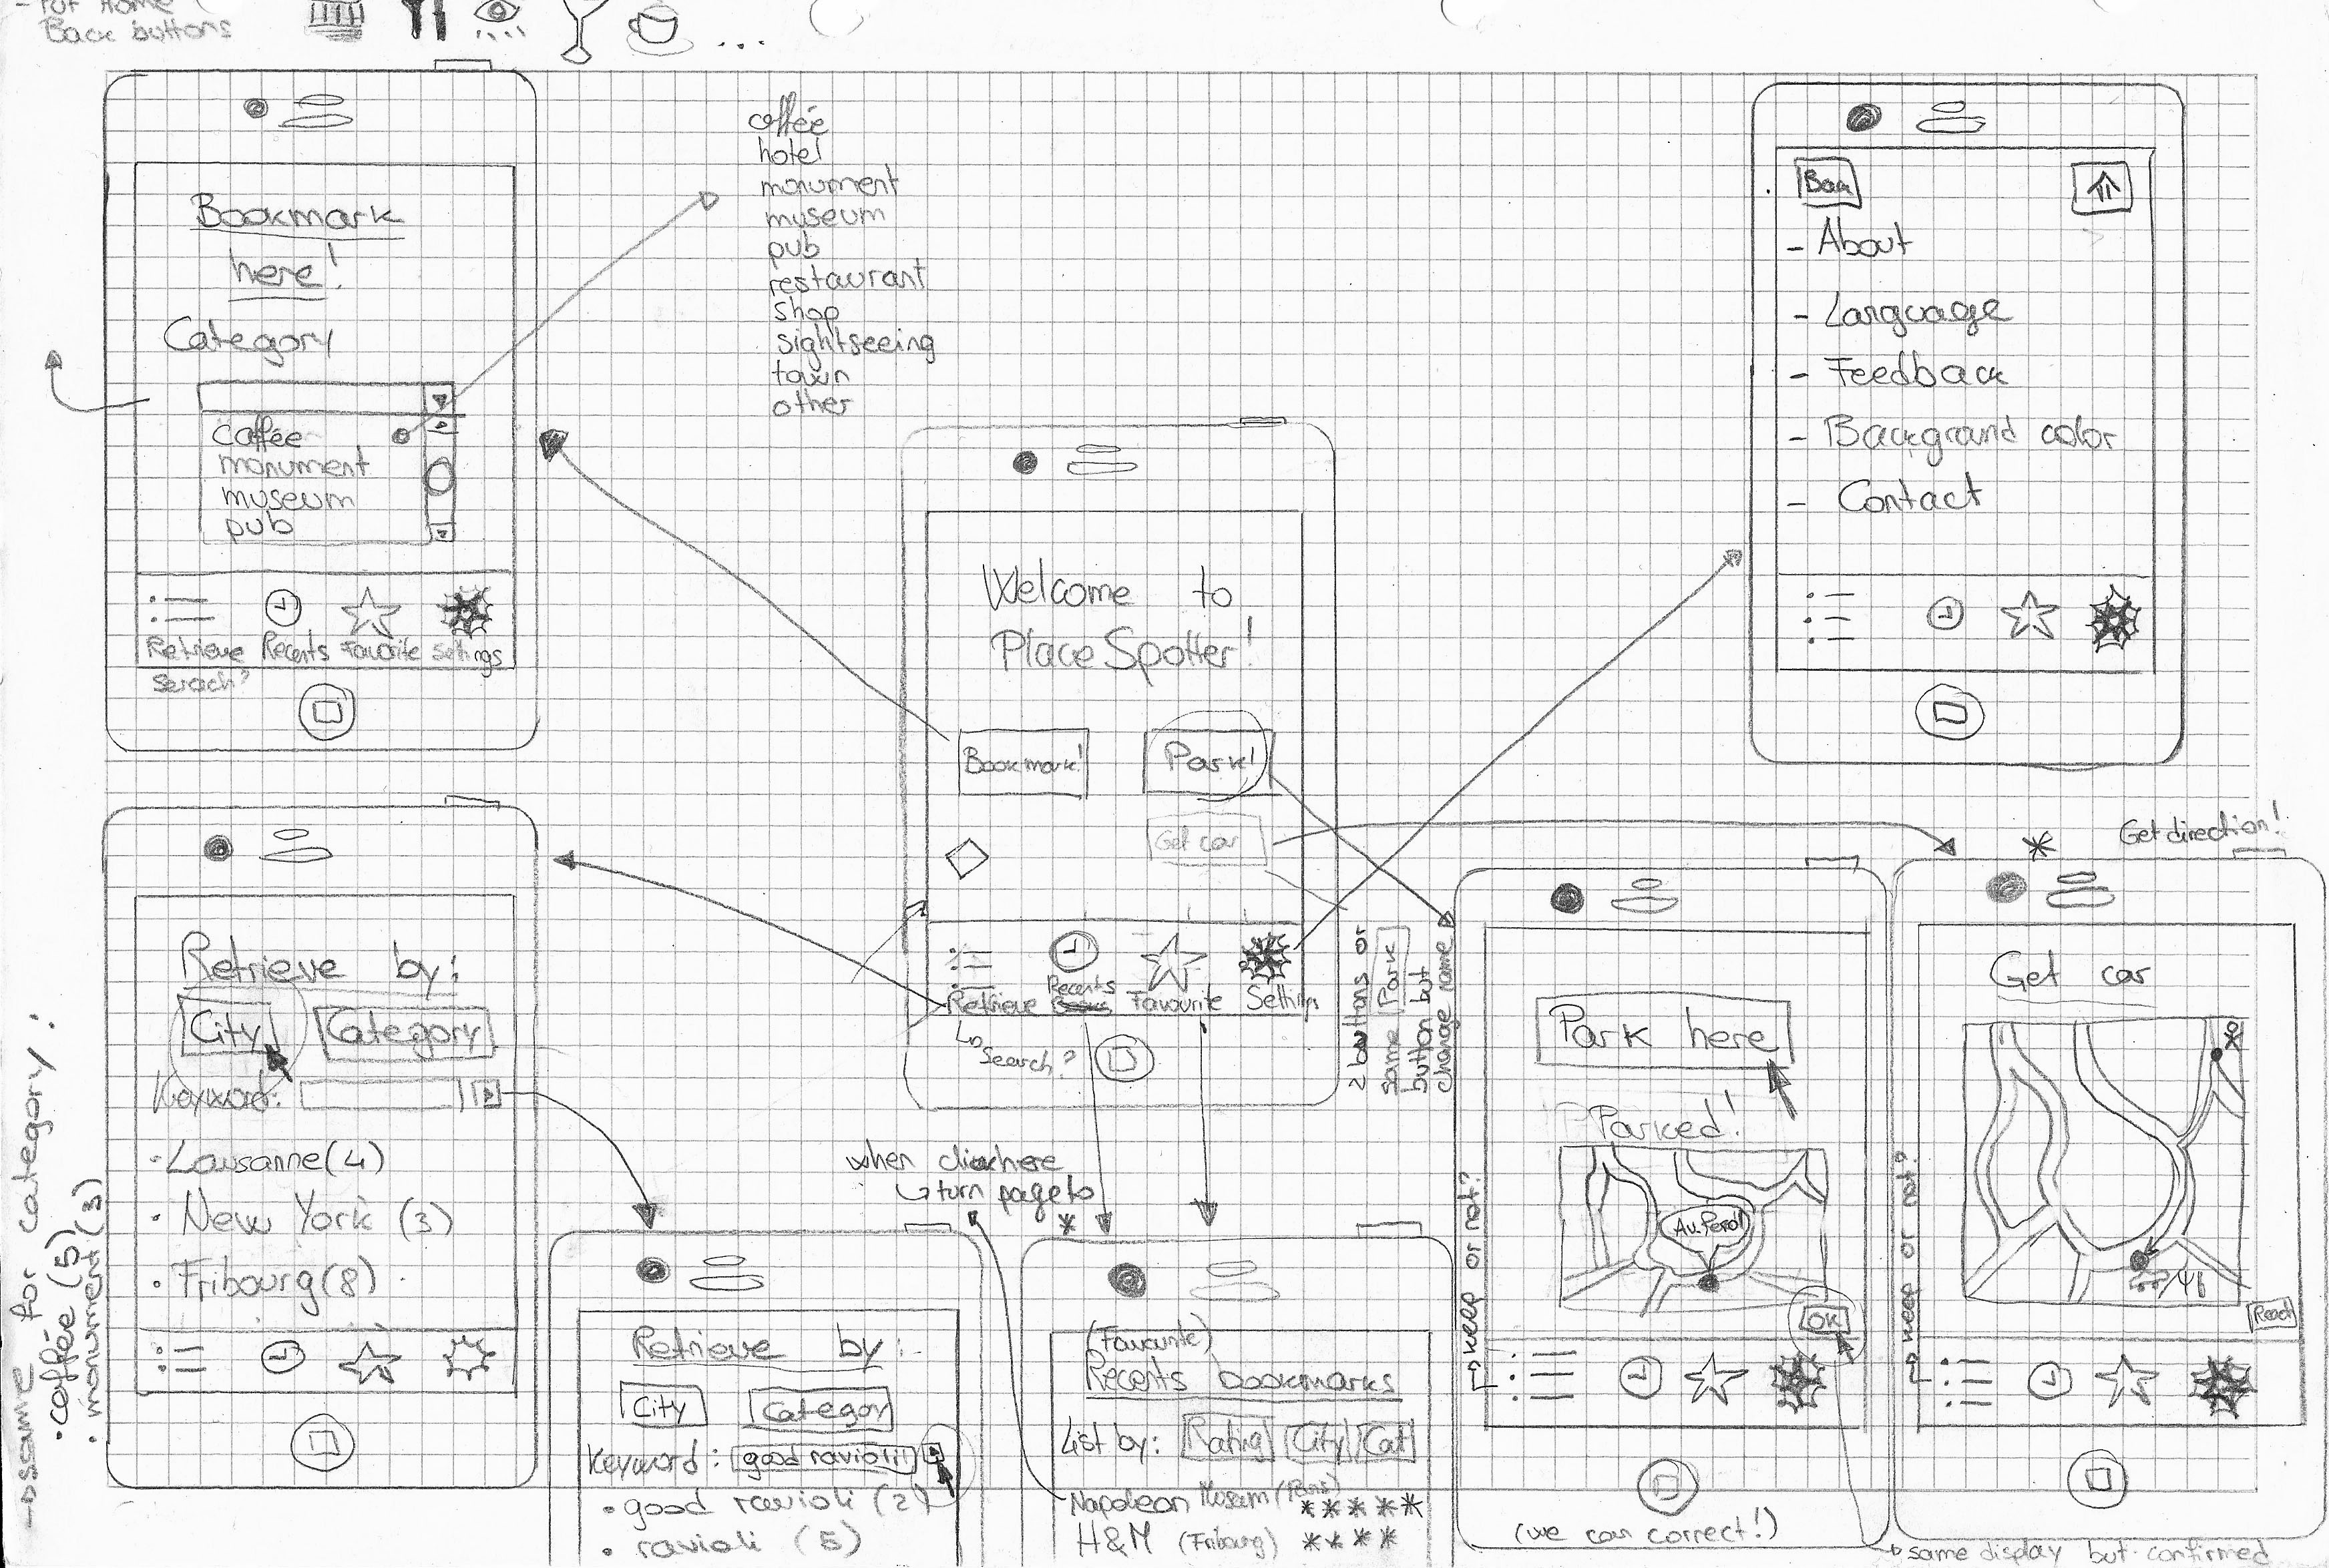 - Put Home
Back buttons
...
Bookmark
here!
Category
caffée
monument
museum
pub
Retrieve Recents Favorite Settings
Serach?
cofféé
hotel
monument
museum
pub
restaurant
shop
sightseeing
town
other
Welcome to
Place Spotter!
Bookmark! Park!
Get car
Retrieve Recents Favourite Settings
Search?
Back
- About
- Language
- Feedback
- Background color
- Contact
Retrieve by:
City Category
Keyword:
• Lausanne (4)
• New York (3)
• Fribourg (8)
same for category:
• cofféé (5)
• monument (3)
when click here
turn page to
*
Retrieve by:
City Category
Keyword: good ravioli
• good ravioli (2)
• ravioli (5)
(Favourite)
Recents bookmarks
List by: Rating City Cat
Napoleon Museum (Paris) *****
H&M (Fribourg) ****
2 buttons or
same Park
button but
change name
Park here
Parked!
OK
keep or not?
(we can correct!)
* Get direction!
Get car
keep or not?
same display but confirmed